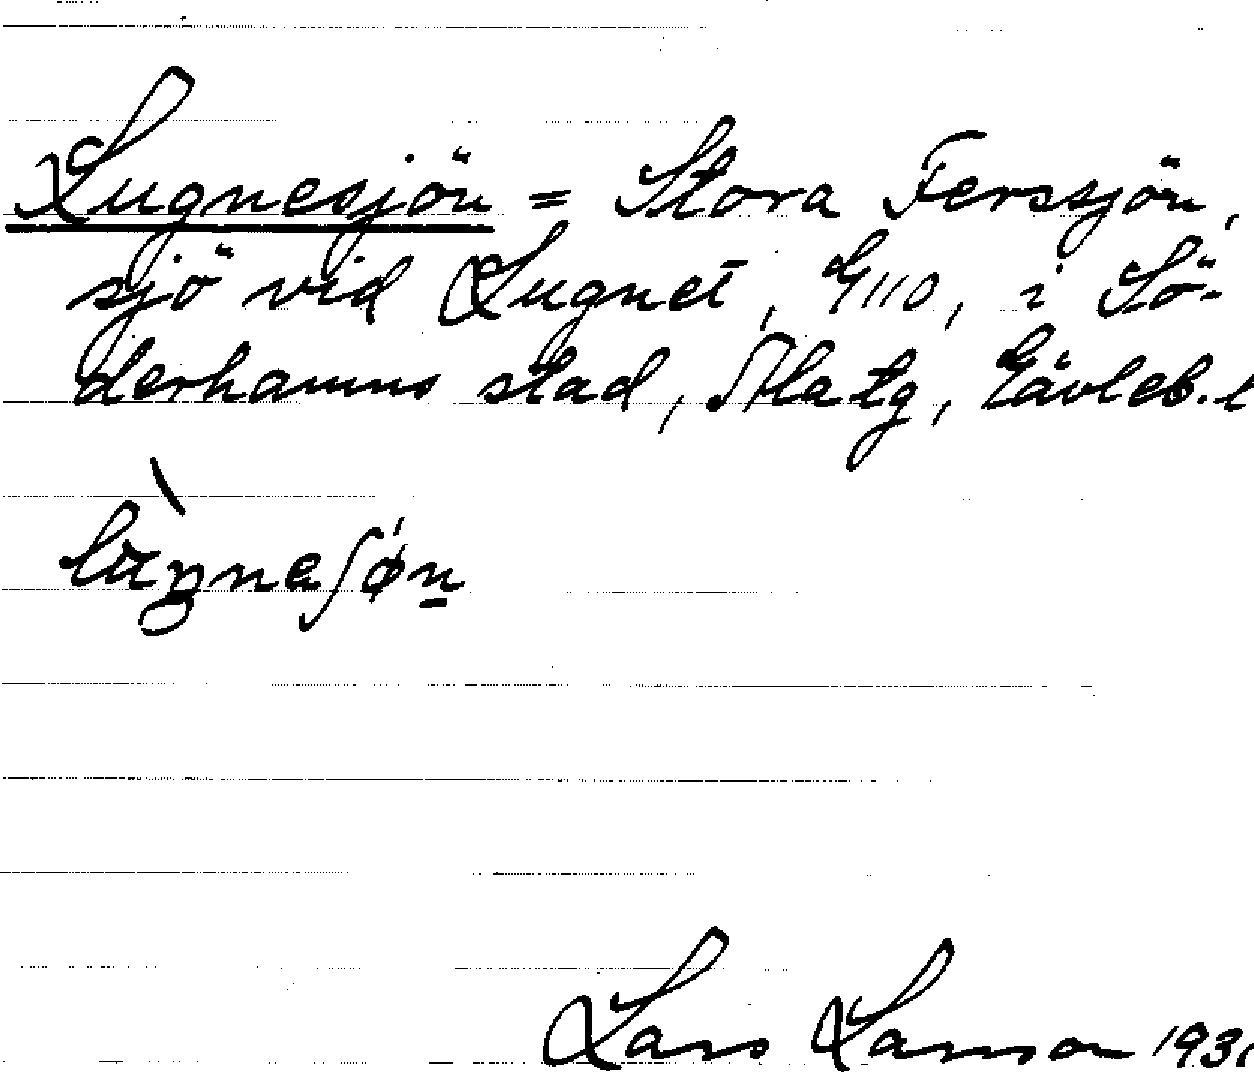 Lugnesjön = Stora Ferssjön,
sjö vid Lugnet, G110, i Sö-
derhamns stad, Ala tg, Gävleb. l
Lars Larsson 193